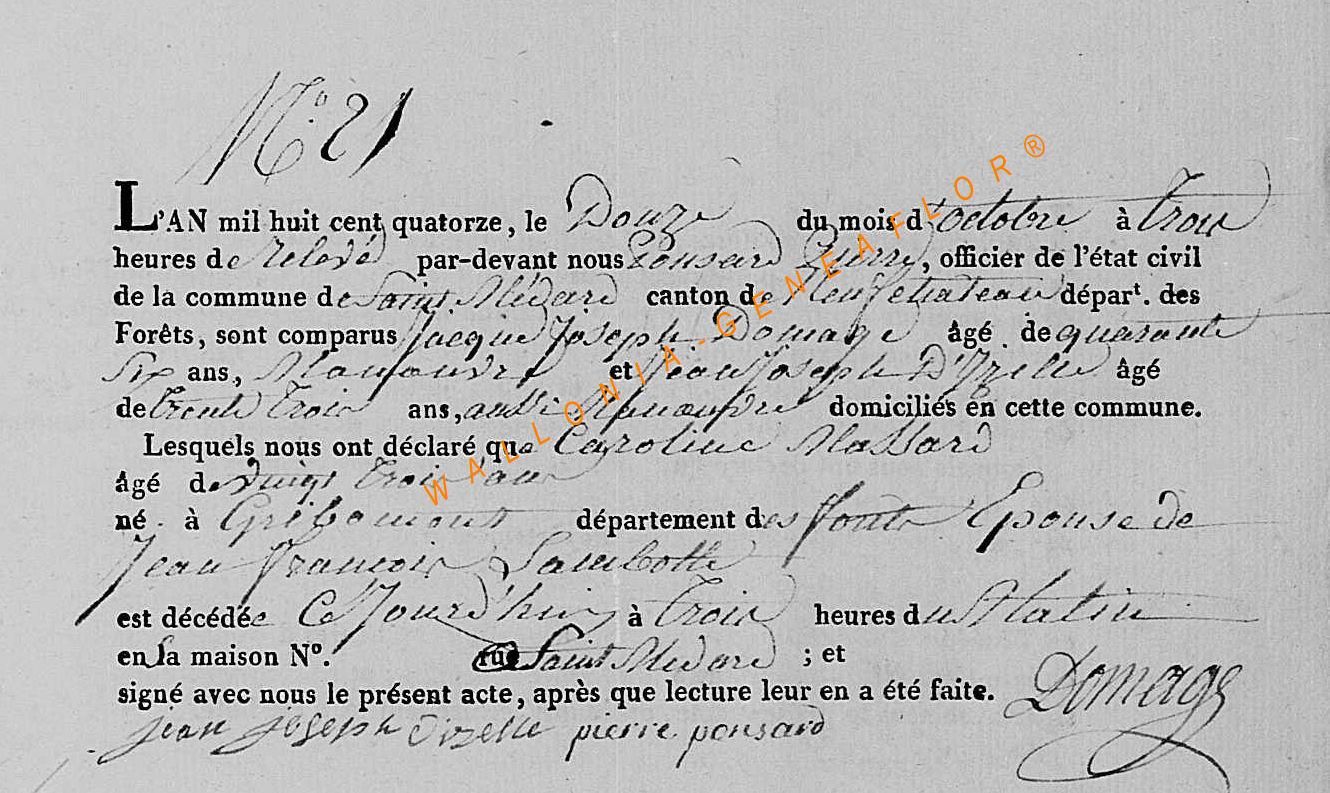 N.° 21
L'AN mil huit cent quatorze, le Douze du mois d'octobre à Trois
heures de Relevé par-devant nous Ponsard Pierre, officier de l'état civil
de la commune de Saint Médard canton de Neufchateau dépar<sup>t</sup>. des
Forêts, sont comparus Jacque Joseph Domage âgé de quarante
Six ans, Manouvre et Jean Joseph D'Izelle âgé
de trente Trois ans, aussi Manouvre domiciliés en cette commune.
Lesquels nous ont déclaré que Caroline Massard
âgé de vingt Trois ans
né à Gribomont département des forêts Epouse de
Jean François Lambotte
est décédée Ce Jourd'huy à Trois heures du Matin
en Sa maison N°. rue Saint Médard ; et
signé avec nous le présent acte, après que lecture leur en a été faite.
Domage
jean joseph dizelle pierre ponsard
WALLONIA-GENEAFLOR®